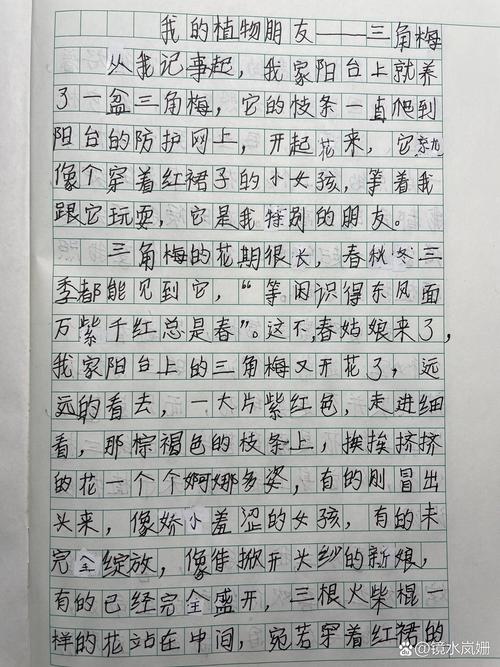 我的植物朋友——三角梅
从我记事起，我家阳台上就养
了一盆三角梅，它的枝条一直爬到
阳台的防护网上，开起花来，它就
像个穿着红裙子的小女孩，等着我
跟它玩耍，它是我特别的朋友。
三角梅的花期很长，春秋冬三
季都能见到它，“等闲识得东风面
万紫千红总是春”。这不，春姑娘来了，
我家阳台上的三角梅又开花了，远
远的看去，一大片紫红色，走进细
看，那棕褐色的枝条上，挨挨挤挤
的花一个个婀娜多姿，有的刚冒出
头来，像娇小羞涩的女孩，有的未
完全绽放，像待掀开头纱的新娘，
有的已经完全盛开，三根火柴棍一
样的花站在中间，宛若穿着红裙的
@镜水岚姗